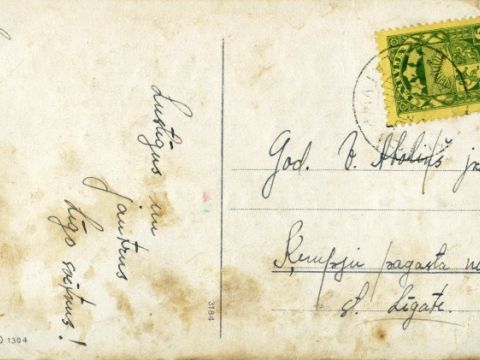 Lustīgus un
jautrus
Līgo svētkus!
God. V. Āboliņš
Ķempju pagasta
st. Līgate.
3184
1304